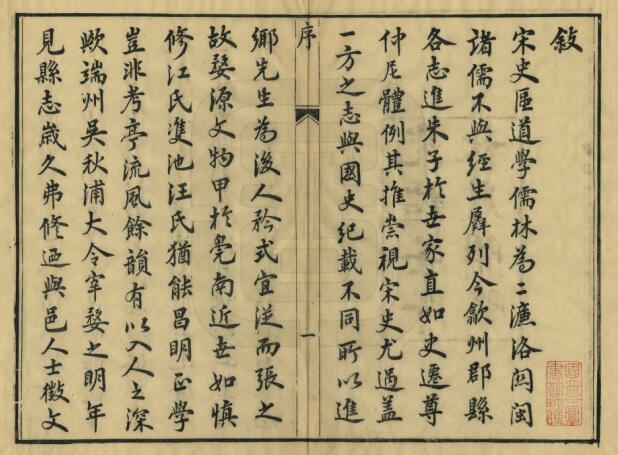 敘
宋史區道學儒林為二濂洛関閩
諸儒不與經生羣列今歙州郡縣
各志進朱子於世家直如史遷尊
仲尼體例其推崇視宋史尤過盖
一方之志與國史紀載不同所以進
序
一
鄉先生為後人矜式宜從而張之
故婺源文物甲於皖南近世如慎
修江氏雙池汪氏猶能昌明正學
豈非考亭流風餘韻有以入人之深
歟端州吳秋浦大令宰婺之明年
見縣志歲久弗修迺與邑人士徵文